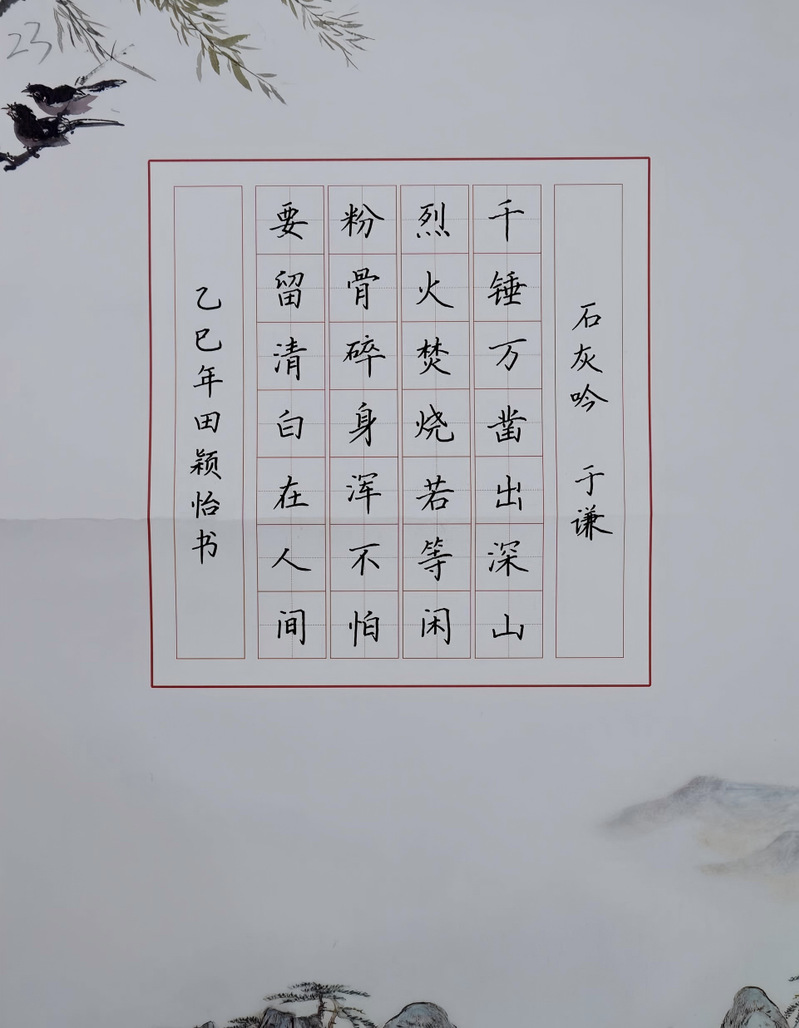 23
石灰吟 于谦
千锤万凿出深山
烈火焚烧若等闲
粉骨碎身浑不怕
要留清白在人间
乙巳年田颖怡书